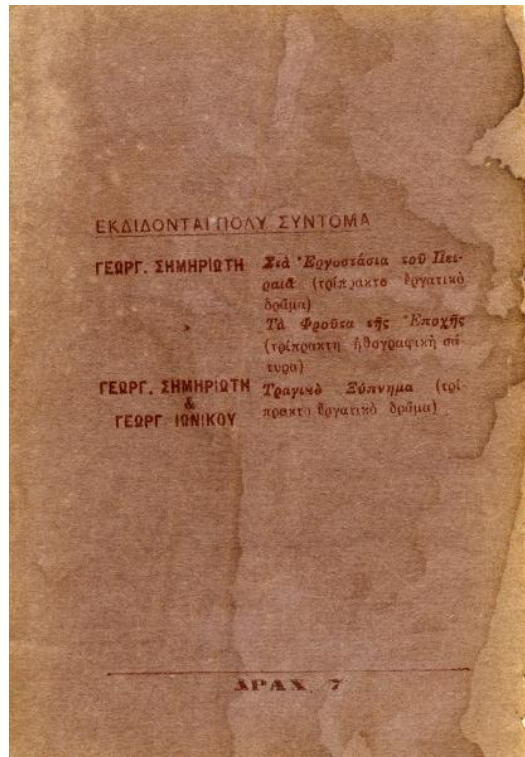 ΕΚΔΙΔΟΝΤΑΙ ΠΟΛΥ ΣΥΝΤΟΜΑ
ΓΕΩΡΓ. ΣΗΜΗΡΙΩΤΗ Στὰ Ἐργοστάσια τοῦ Πει-
ραιᾶ (τρίπρακτο ἐργατικὸ
δρᾶμα)
» Τὰ Φροῦτα τῆς Ἐποχῆς
(τρίπρακτη ἠθογραφικὴ σά-
τυρα)
ΓΕΩΡΓ. ΣΗΜΗΡΙΩΤΗ Τραγικὸ Ξύπνημα (τρί-
& πρακτο ἐργατικὸ δρᾶμα)
ΓΕΩΡΓ. ΙΩΝΙΚΟΥ
ΔΡΑΧ. 7